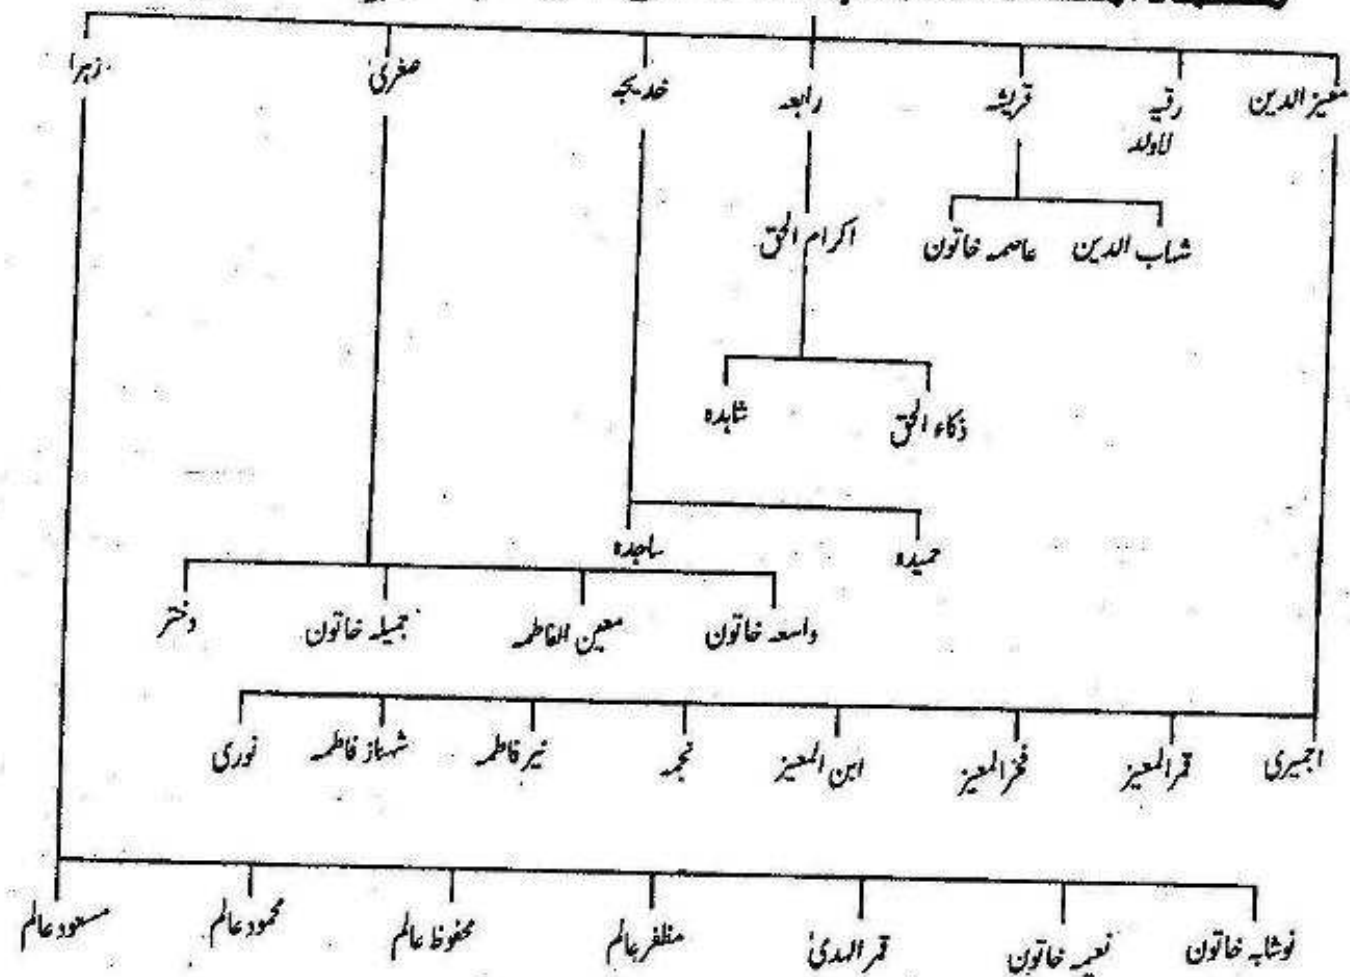 معیز الدین رقیہ قریشہ رابعہ خدیجہ صغریٰ زہرا
لاولد
شہاب الدین عاصمہ خاتون اکرام الحق
ذکاء الحق شاہدہ
حمیدہ ساجدہ
واسعہ خاتون معین الفاطمہ جمیلہ خاتون دختر
اجمیری قمر المعیز فخر المعیز ابن المعیز نجمہ نیر فاطمہ شہناز فاطمہ نوری
نوشابہ خاتون نعیمہ خاتون قمر الہدیٰ مظفر عالم محفوظ عالم محمود عالم مسعود عالم